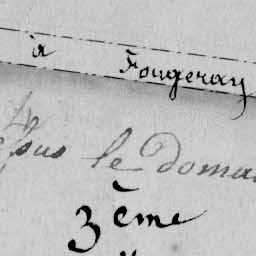 à Fougeray
le Doma
3ème